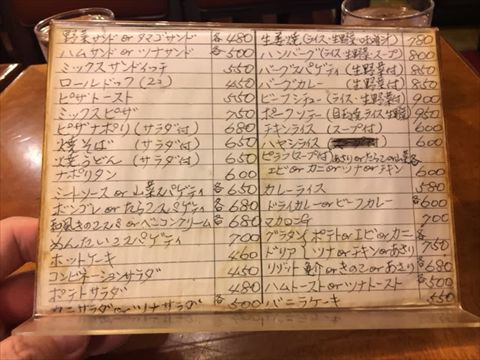 野菜サンド or タマゴサンド 各480
ハムサンド or ツナサンド 各500
ミックスサンドイッチ 550
ロールドック(2コ) 450
ピザトースト 550
ミックスピザ 750
ピザナポリ(サラダ付) 680
焼そば(サラダ付) 650
焼うどん(サラダ付) 650
ナポリタン 600
ミートソース or 山菜スパゲティ 各650
ボンゴレ or たらこスパゲティ 各680
和風きのこスパ or ベーコンクリーム 各680
めんたいコスパゲティ 700
ホットケーキ 460
コンビネーションサラダ 450
ポテトサラダ 480
カニサラダ or ツナサラダ 各500
生姜焼(ライス・生野菜・味噌汁) 780
ハンバーグ(ライス・生野菜・スープ) 800
バーグスパゲティ(生野菜付) 850
バーグカレー(生野菜付) 850
ビーフシチュー(ライス・生野菜付) 900
ポークソテー(目玉焼 ライス 生野菜) 950
チキンライス(スープ付) 600
ハヤシライス 600
ピラフ(スープ付) あさり or たらこ or 山菜
エビ or カニ or ツナ or チキン 各600
カレーライス 580
ドライカレー or ビーフカレー 各600
マカロニG 700
グラタン ポテト or エビ or カニ
ドリア ツナ or チキン or あさり 各750
リゾット or きのこ or あさり 各680
ハムトースト or ツナトースト 各500
バニラケーキ 550